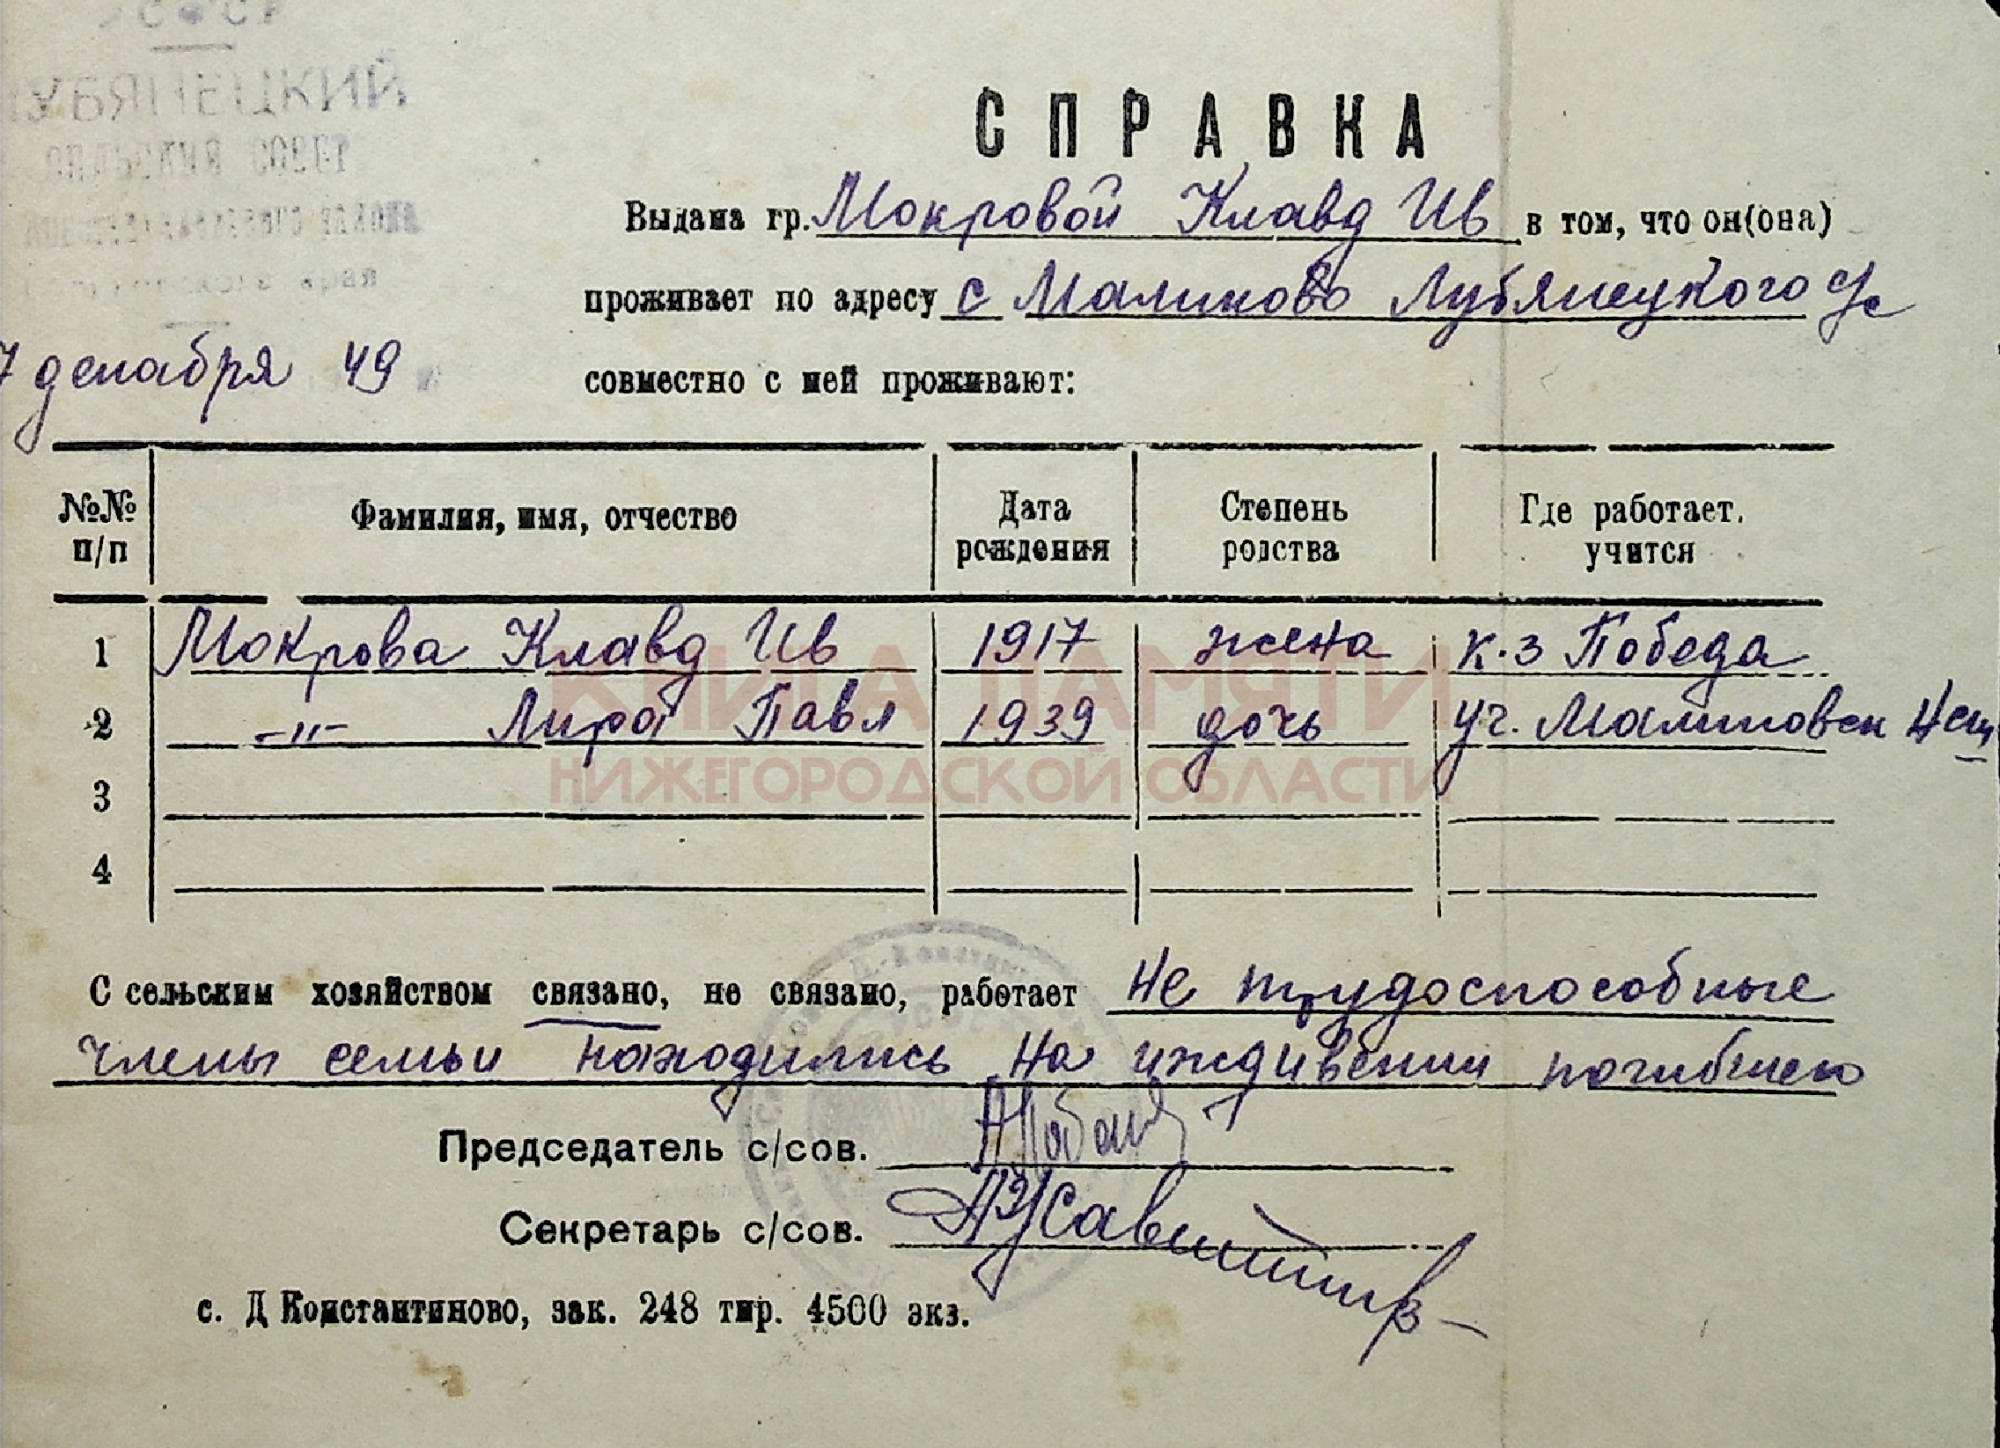 СПРАВКА
Выдана гр. Мокровой Клавд Ив в том, что он(она)
проживает по адресу с Малиново Лубянецкого с/с
7 декабря 49
совместно с ней проживают:
№№ п/п
Фамилия, имя, отчество
Дата рождения
Степень родства
Где работает, учится
1 Мокрова Клавд Ив 1917 жена к-з Победа
2 -"- Лира Павл 1939 дочь уч. Малиновск
3
4
КНИГА ПАМЯТИ
НИЖЕГОРОДСКОЙ ОБЛАСТИ
С сельским хозяйством связано, не связано, работает не трудоспособные
члены семьи находились на иждивении погибшего
Председатель с/сов.
Секретарь с/сов.
с. Д Константиново, зак. 248 тир. 4500 экз.